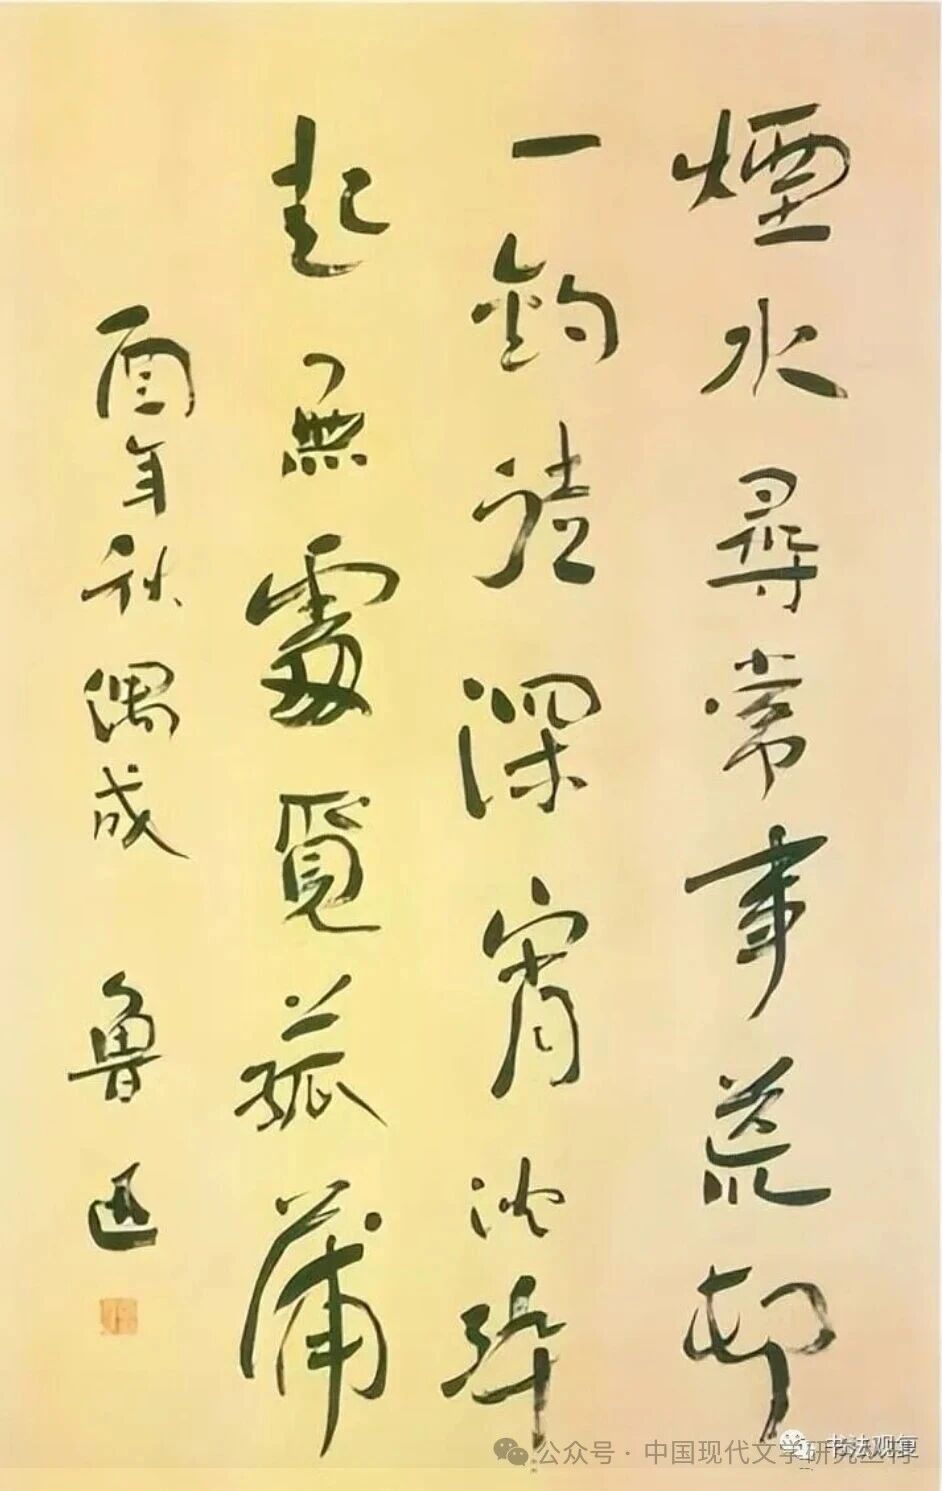 煙水尋常事荒邨
一釣徒深宵沈醉
起無處覓菰蒲
酉年秋偶成 魯迅
书法观复
公众号 · 中国现代文学研究丛刊